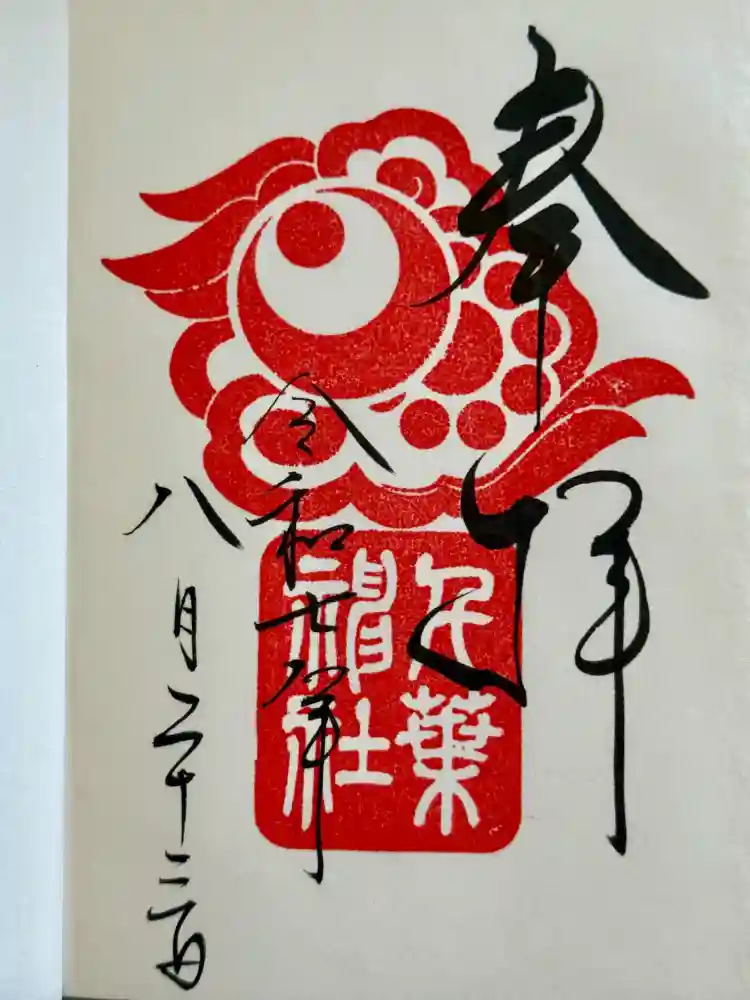 奉拝
千葉
神社
令和七年
八月二十三日